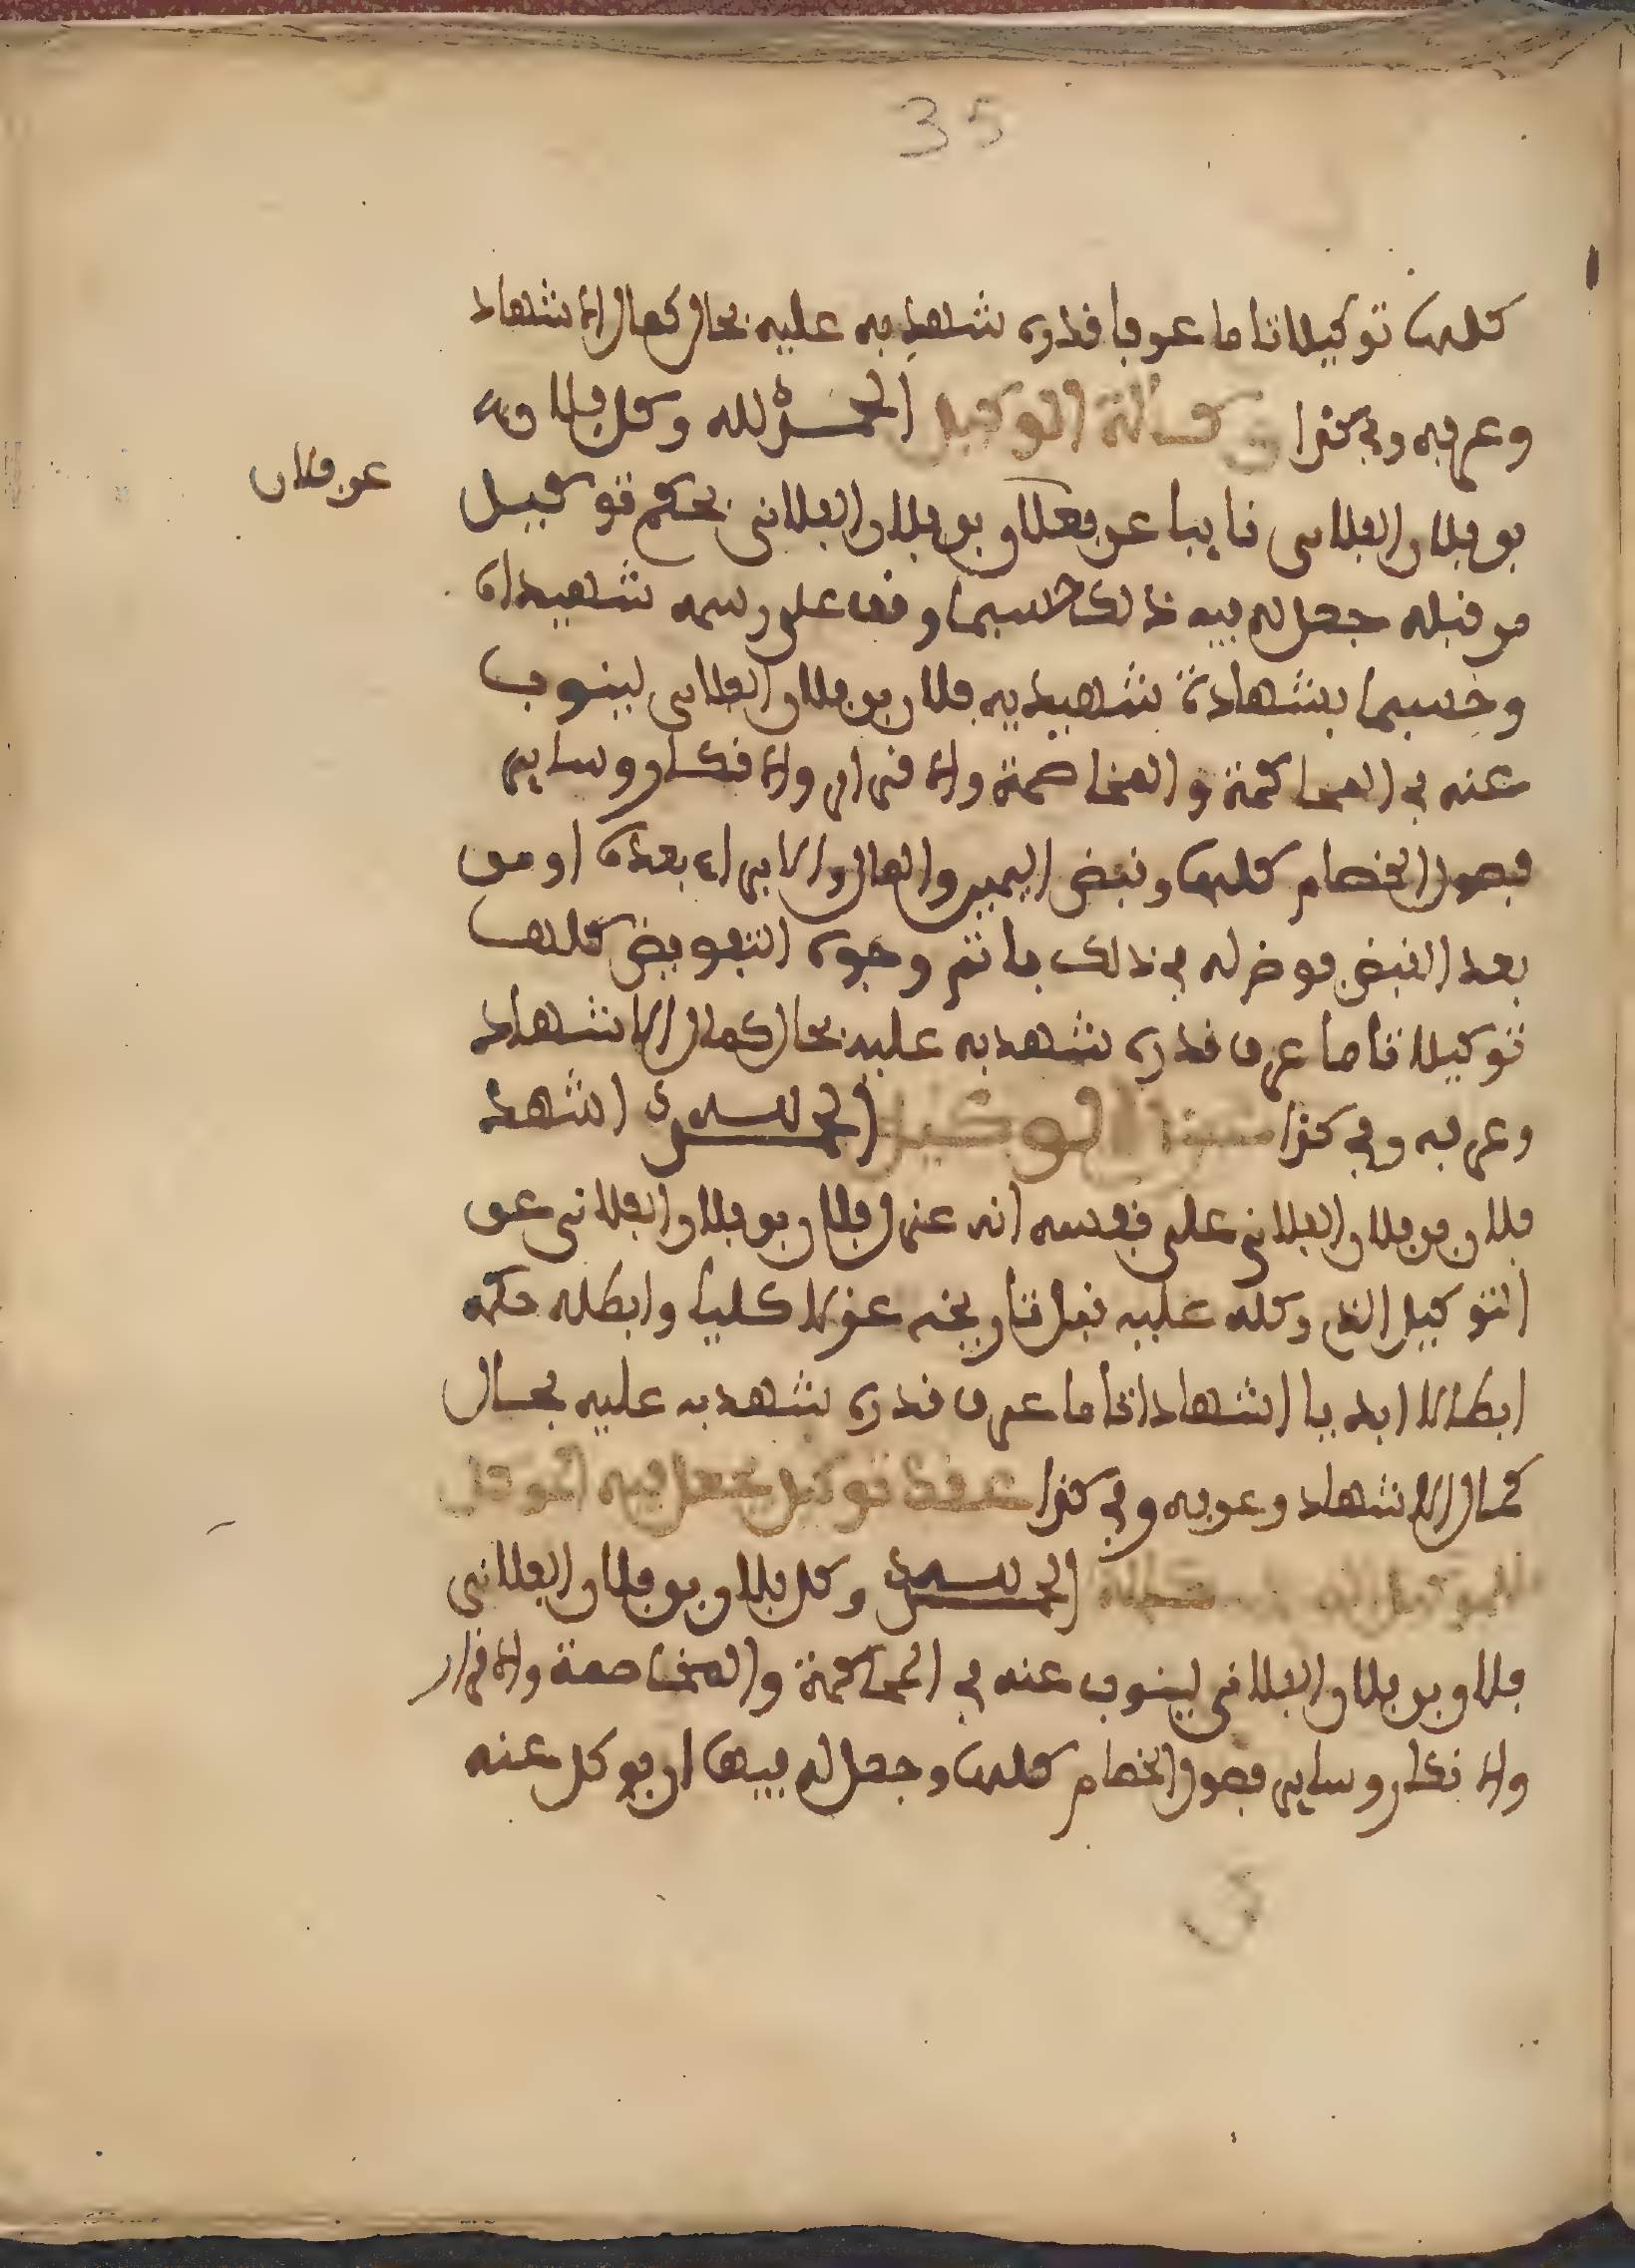 35
كلها توكيلا تاما عرفا قدره شهد به عليه بحال كمال الاشهاد
وعرفه وفي كذا وكالة الوكيل الحمد لله وكل فلان
بن فلان الفلاني نايبا عن فلان بن فلان الفلاني بحكم توكيل
عن فلان
من قبله جعل له فيه ذلك حسبما وقف على رسمه شهيداه
وحسبما بشهادة شهيديه فلان بن فلان الفلاني لينوب
عنه في المحاكمة والمخاصمة والاقرار والانكار وساير
فصول الخصام كلها وقبض اليمين والمال والابراء بعده او من
بعد القبض فوض له في ذلك باتم وجوه التفويض كلها
توكيلا تاما عرف قدره شهد به عليه بحال كمال الاشهاد
وعرفه وفي كذا عزل الوكيل الحمد لله اشهد
فلان بن فلان الفلاني على نفسه انه عزل فلان بن فلان الفلاني عن
التوكيل الذي وكله عليه قبل تاريخه عزلا كليا وابطله حكمه
ابطالا ابديا اشهادا تاما عرف قدره شهد به عليه بحال
كمال الاشهاد وعرفه وفي كذا عقد توكيل يجعل فيه الموكل
للوكيل الحمد لله وكل فلان بن فلان الفلاني
فلان بن فلان الفلاني لينوب عنه في المحاكمة والمخاصمة والاقرار
والانكار وساير فصول الخصام كلها وجعل له فيها ان يوكل عنه